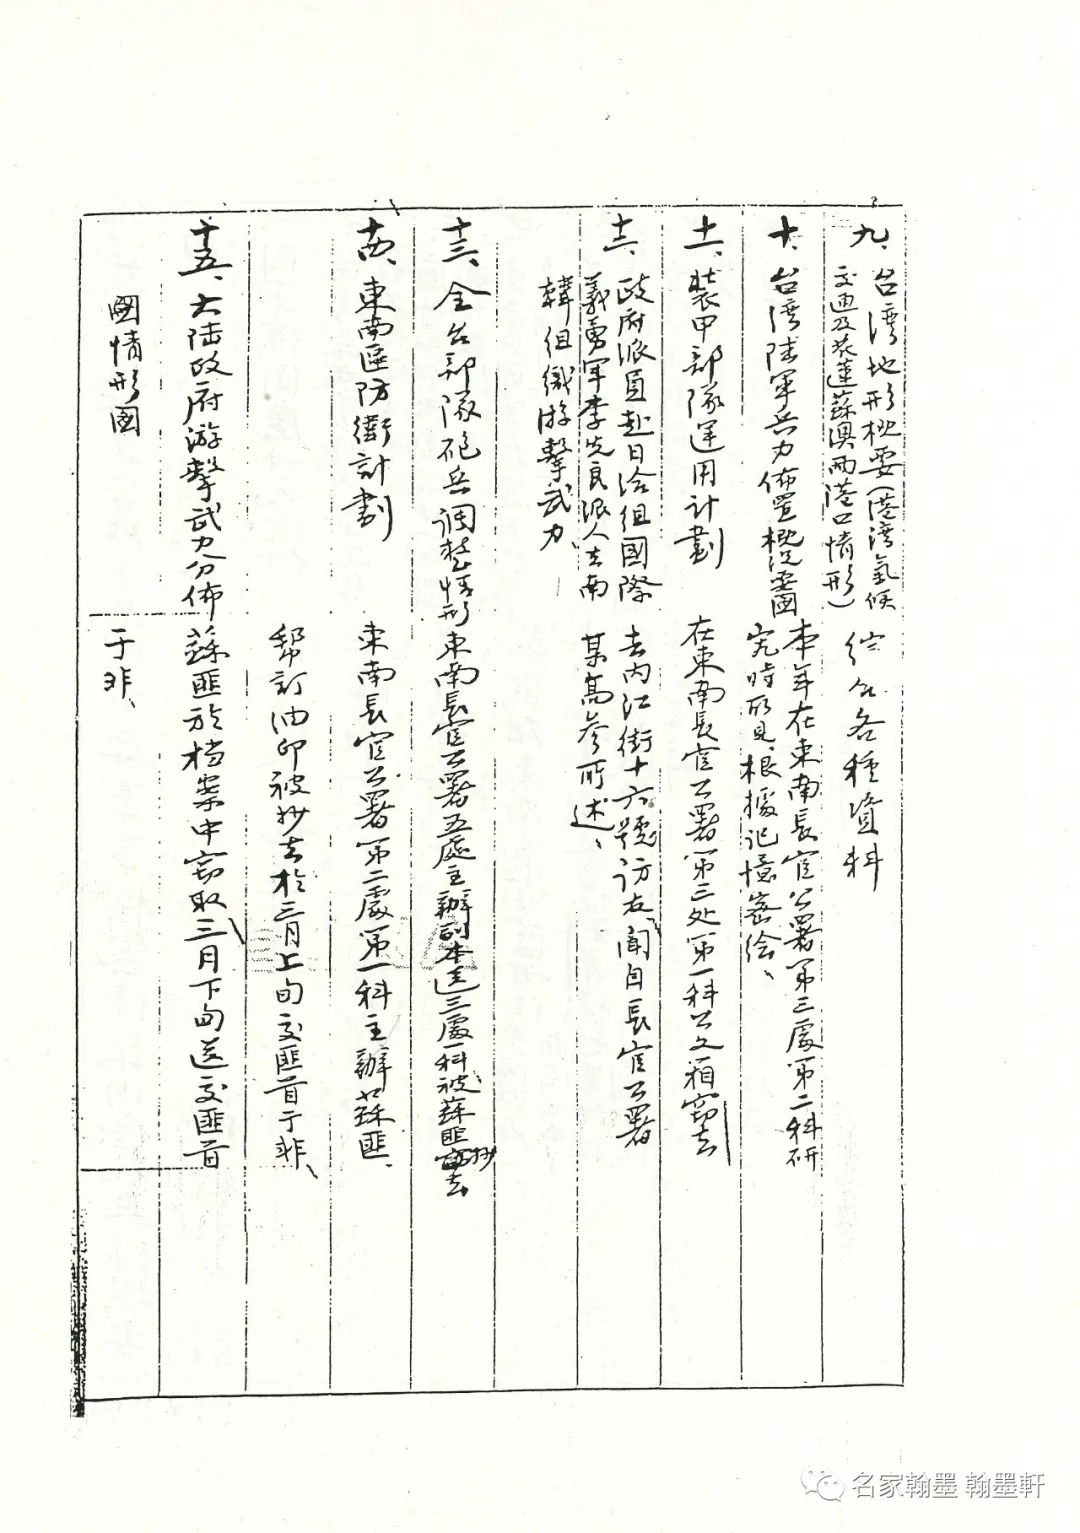 九、台灣地形概要(港灣氣候
交通及花蓮蘇澳兩港口情形)
綜合各種資料
十、台灣陸軍兵力佈置概況要圖
本年在東南長官公署第三處第二科研
究時所見、根據記憶密绘、
十一、裝甲部隊運用計劃
在東南長官公署第三处第一科公文箱竊去
十二、政府派員赴日洽組國際
義勇軍李先良派人去南
韓組織游擊武力、
去内江街十六號访友聞自長官公署
某高參所述、
十三、全台部隊砲兵调整情形
東南長官公署五處主辦副本送三處一科被蘇匪抄去
十四、東南區防衛計劃
東南長官公署第二處第一科主辦蘇匪
帮訂油印被抄去於三月上旬交匪首于非、
十五、大陸政府游擊武力分佈
國情形圖
蘇匪於档案中竊取三月下旬送交匪首
于非、
名家翰墨 翰墨軒